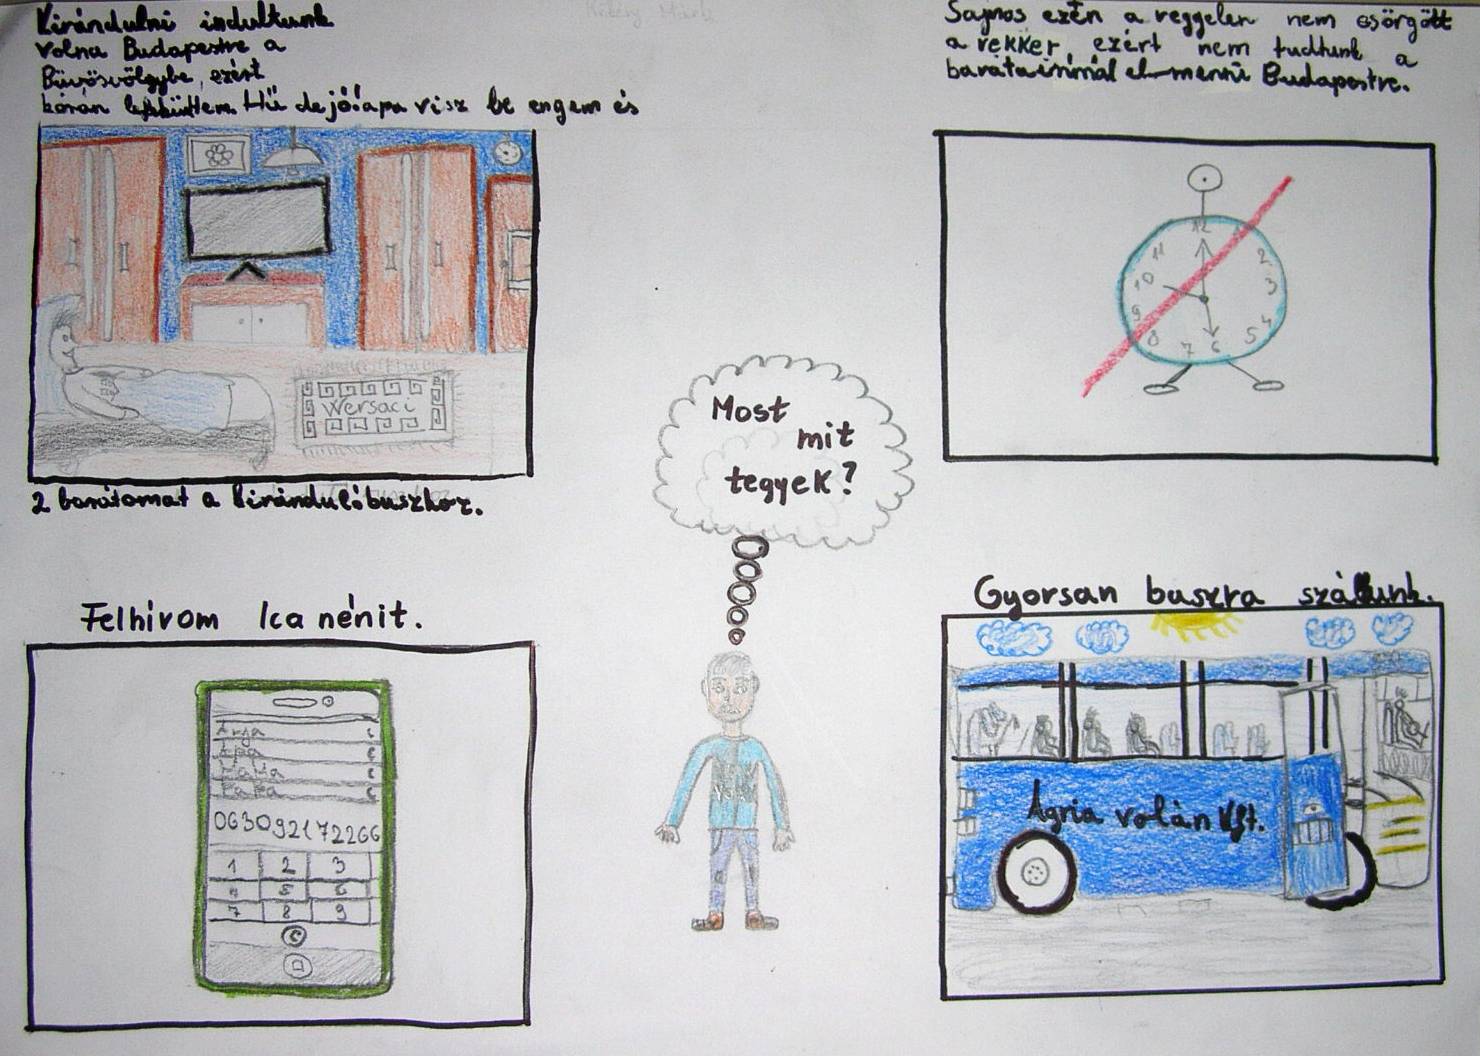 Kirándulni indultunk
volna Budapestre a
Bűvösvölgybe, ezért
korán lefeküttem. Hű de jó! apa visz be engem és
2 barátomat a kirándulóbuszhoz.
Sajnos ezen a reggelen nem csörgött
a vekker, ezért nem tudtunk a
barátaimmal el menni Budapestre.
12
11
2
10
3
9
4
8
7
6
5
Wersaci
Most
mit
tegyek?
Felhívom Ica nénit.
Anya
Apa
MaMa
PaPa
06309217 2266
1 2 3
4 5 6
7 8 9
Gyorsan buszra szállunk.
Agria volán Kft.